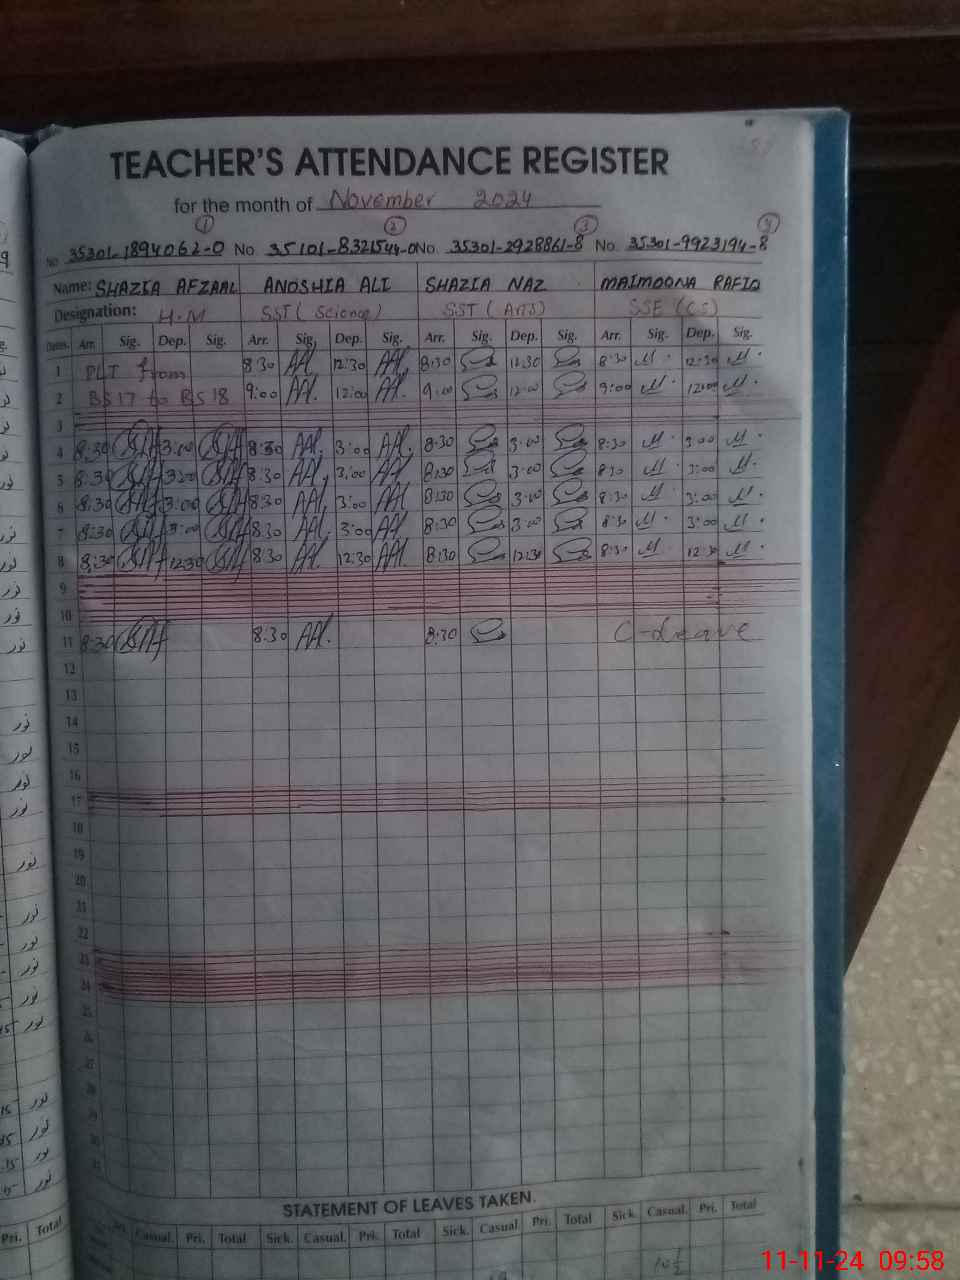 TEACHER'S ATTENDANCE REGISTER
for the month of November 2024
1 2 3 4
No 35301-1894062-0 No. 35101-8321544-0 No. 35301-2928861-8 No. 35301-9923194-8
Name: SHAZIA AFZAAL ANOSHIA ALI SHAZIA NAZ MAIMOONA RAFIQ
Designation: H.M SST (Science) SST (Arts) SSE (CS)
Dates. Arr. Sig. Dep. Sig. Arr. Sig. Dep. Sig. Arr. Sig. Dep. Sig. Arr. Sig. Dep. Sig.
1 PLT from 8:30 12:30 8:30 12:30 8:30 12:30
2 BS 17 to BS 18 9:00 12:00 9:00 12:00 9:00 12:00
3
4 8:30 3:00 8:30 3:00 8:30 3:00 8:30 3:00
5 8:30 3:00 8:30 3:00 8:30 3:00 8:30 3:00
6 8:30 3:00 8:30 3:00 8:30 3:00 8:30 3:00
7 8:30 3:00 8:30 3:00 8:30 3:00 8:30 3:00
8 8:30 12:30 8:30 12:30 8:30 12:30 8:30 12:30
9
10
11 8:30 8:30 8:30 C-Leave
12
13
14
15
16
17
18
19
20
21
22
23
24
25
26
27
28
29
30
31
STATEMENT OF LEAVES TAKEN.
Casual. Pri. Total Sick. Casual. Pri. Total Sick. Casual Pri. Total Sick. Casual. Pri. Total
Pri. Total
11-11-24 09:58